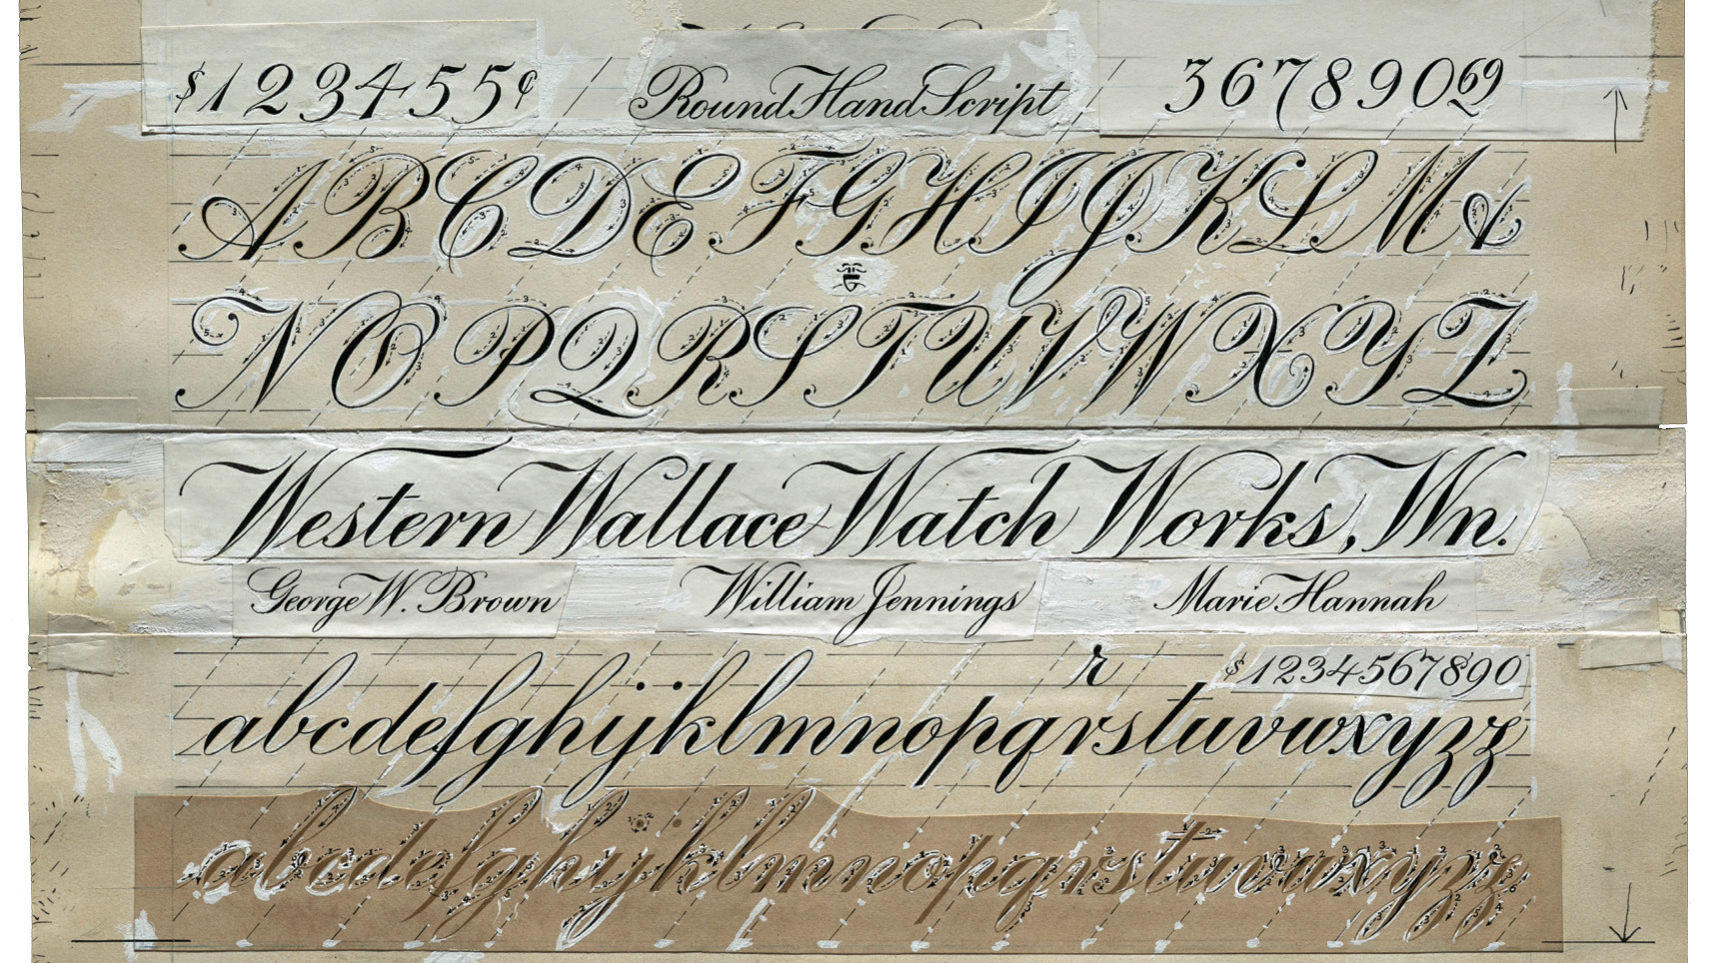 $123455¢ RoundHandScript 367890 69
ABCDEFGHIJKLM&
NOPQRSTUVWXYZ
Western Wallace Watch Works, Wn.
George W. Brown William Jennings Marie Hannah
r $1234567890
abcdefghijklmnopqrstuvwxyzz
abcdefghijklmnopqrstuvwxyzz